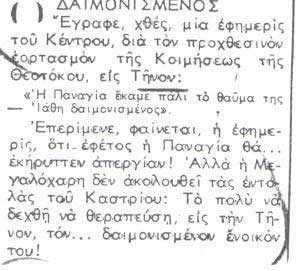 ( ) ΔΑΙΜΟΝΙΣΜΕΝΟΣ
Ἔγραφε, χθές, μία ἐφημερὶς
τοῦ Κέντρου, διὰ τὸν προχθεσινὸν
ἑορτασμὸν τῆς Κοιμήσεως τῆς
Θεοτόκου, εἰς Τῆνον:
«Ἡ Παναγία ἔκαμε πάλι τὸ θαῦμα της
— Ἰάθη δαιμονισμένος».
Ἐπερίμενε, φαίνεται, ἡ ἐφημε-
ρίς, ὅτι ἐφέτος ἡ Παναγία θά...
ἐκήρυττεν ἀπεργίαν! Ἀλλὰ ἡ Με-
γαλόχαρη δὲν ἀκολουθεῖ τὰς ἐντο-
λὰς τοῦ Καστρίου: Τὸ πολὺ νὰ
δεχθῆ νὰ θεραπεύση, εἰς τὴν Τῆ-
νον, τόν... δαιμονισμένον ἔνοικόν
του!